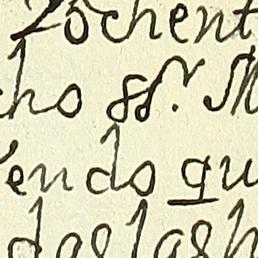 ochent
cho ss.r M
endo qu
das las h